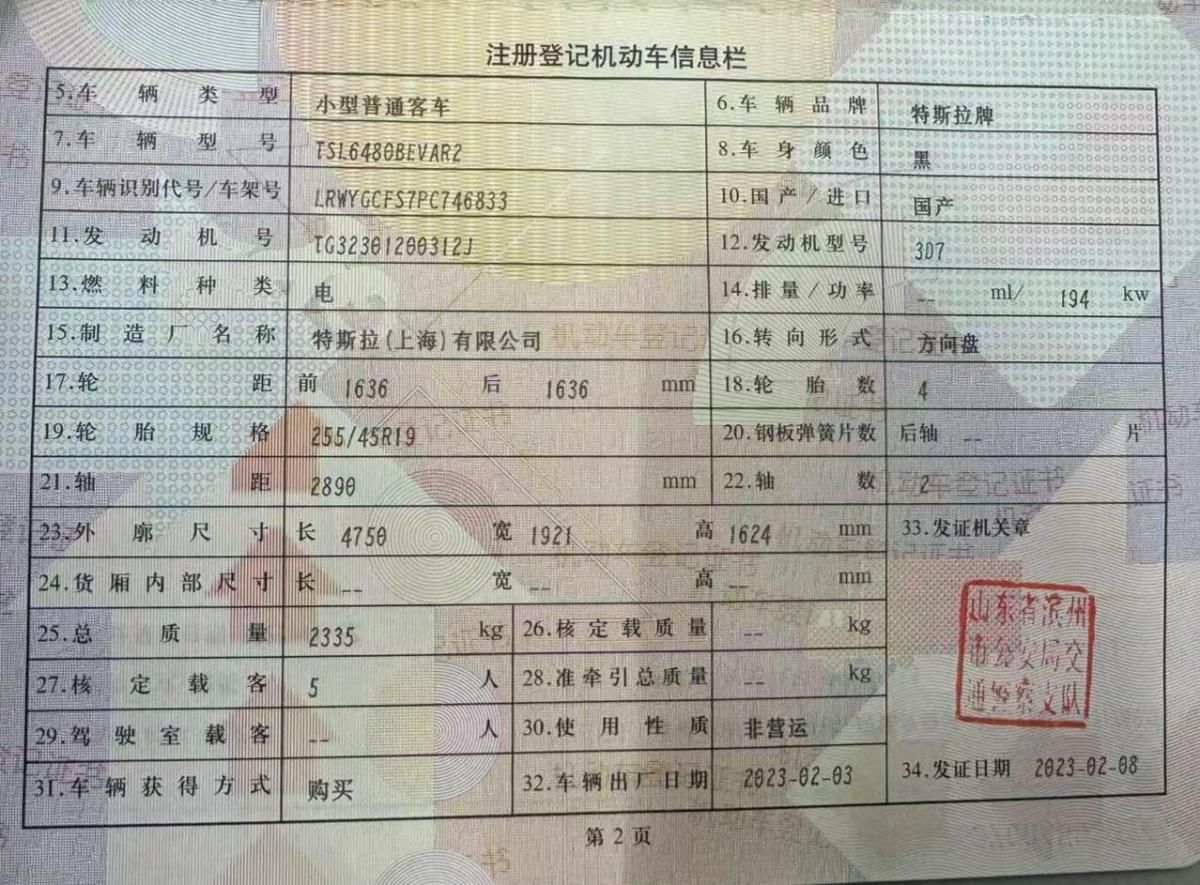 注册登记机动车信息栏
5.车辆类型 小型普通客车 6.车辆品牌 特斯拉牌
7.车辆型号 TSL6480BEVAR2 8.车身颜色 黑
9.车辆识别代号/车架号 LRWYGCFS7PC746833 10.国产/进口 国产
11.发动机号 TG32301200312J 12.发动机型号 3D7
13.燃料种类 电 14.排量/功率 -- ml/ 194 kw
15.制造厂名称 特斯拉(上海)有限公司 16.转向形式 方向盘
17.轮距 前 1636 后 1636 mm 18.轮胎数 4
19.轮胎规格 255/45R19 20.钢板弹簧片数 后轴 -- 片
21.轴距 2890 mm 22.轴数 2
23.外廓尺寸 长 4750 宽 1921 高 1624 mm 33.发证机关章
24.货厢内部尺寸 长 -- 宽 -- 高 -- mm
25.总质量 2335 kg 26.核定载质量 -- kg
27.核定载客 5 人 28.准牵引总质量 -- kg
山东省滨州
市公安局交
通警察支队
29.驾驶室载客 -- 人 30.使用性质 非营运
31.车辆获得方式 购买 32.车辆出厂日期 2023-02-03 34.发证日期 2023-02-08
第2页